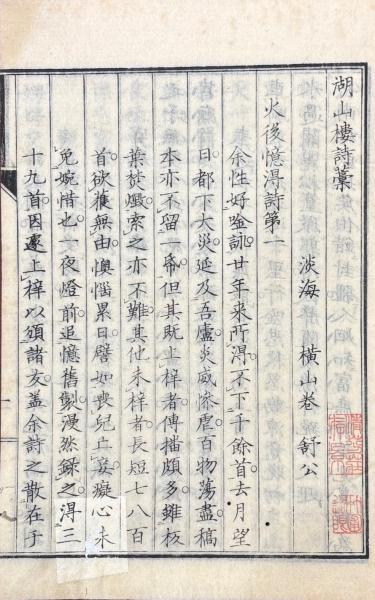 湖山樓詩藁
淡海 橫山卷 舒公
火後憶得詩第一
余性好唫詠廿年來所得不下千餘首去月望
日都下大災延及吾廬炎威慘虐百物蕩盡稿
本亦不留一帋但其既上梓者傳播頗多雖枝
葉焚燬索之亦不難其他未梓者長短七八百
首欲獲無由懊惱累日譬如喪兒止哀癡心未
免惋惜也一夜燈前追憶舊製漫然錄之得三
十九首因遂上梓以頒諸友蓋余詩之散在于